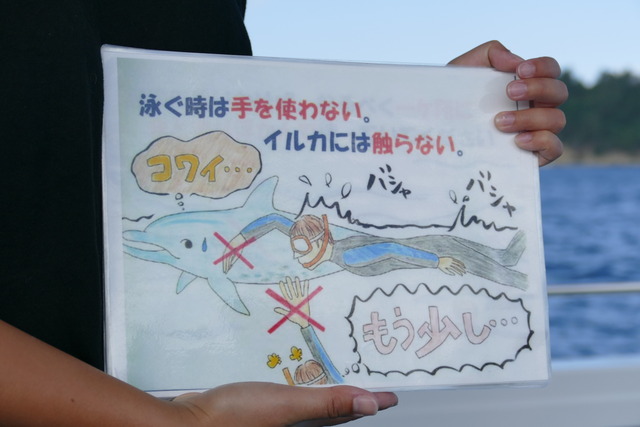 泳ぐ時は手を使わない。
イルカには触らない。
コワイ…
バシャ
バシャ
もう少し…